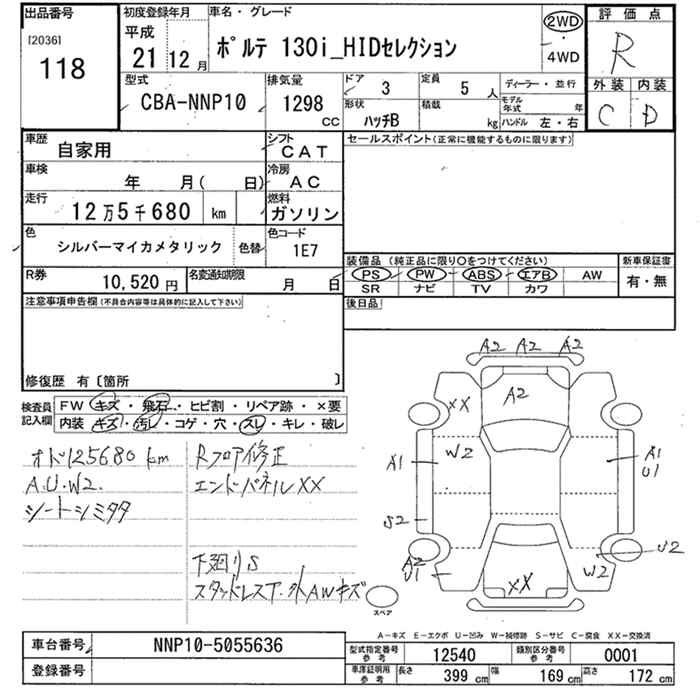 出品番号
[2036]
118
初度登録年月
平成
21 12 月
車名・グレード
ポルテ 130i_HIDセレクション
2WD
・
4WD
評価点
R
外装 内装
C D
型式
CBA-NNP10
排気量
1298
CC
ドア
3
定員
5 人
形状
ハッチB
積載
kg
ディーラー・並行
モデル年式
年
ハンドル 左・右
車歴
自家用
シフト
CAT
車検
年 月( 日)
冷房
AC
走行
12万5千680 km
燃料
ガソリン
色
シルバーマイカメタリック
色替
色コード
1E7
R券
10,520 円
名変通知期限
月 日
セールスポイント(正常に機能するものに限ります)
装備品(純正品に限り○をつけてください)
PS PW ABS エアB AW
SR ナビ TV カワ
新車保証書
有・無
後日品
注意事項申告欄(不具合内容等は具体的に記入して下さい)
修復歴 有〔箇所 〕
検査員記入欄
FW キズ・飛石・ヒビ割・リペア跡・×要
内装 キズ・汚レ・コゲ・穴・スレ・キレ・破レ
オド125680km
A.U.W2.
シートシミタタ
Rフロア修正
エンドパネルXX
下廻りS
スタッドレスT.外AWキズ
A2 A2 A2
XX
A2
W2
A1
A1
U1
S2
A2
U1
XX
W2
U2
スペア
A-キズ E-エクボ U-凹み W-補修跡 S-サビ C-腐食 XX-交換済
車台番号
NNP10-5055636
登録番号
型式指定番号
参考
12540
類別区分番号
参考
0001
車庫証明用
参考
長さ
399 cm
幅
169 cm
高さ
172 cm